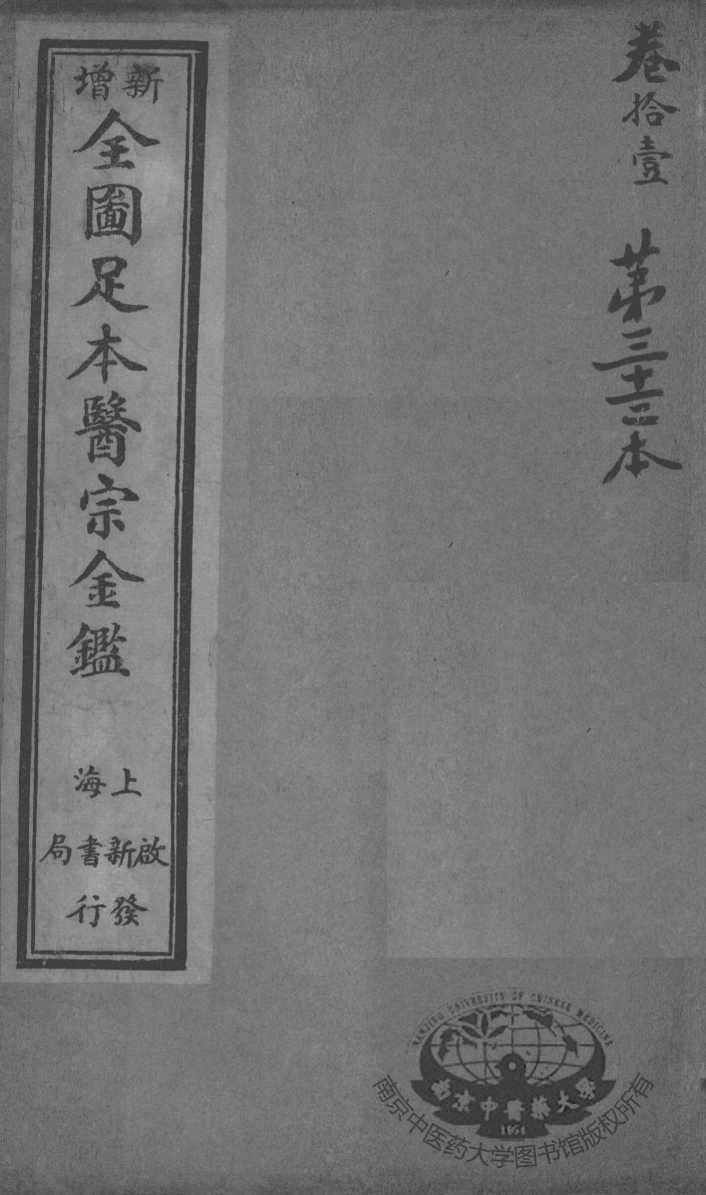 卷拾壹 第三十三本
新增
全圖足本醫宗金鑑
上海
啟新書局
發行
NANJING UNIVERSITY OF CHINESE MEDICINE
南京中醫藥大學
1954
南京中医药大学图书馆版权所有